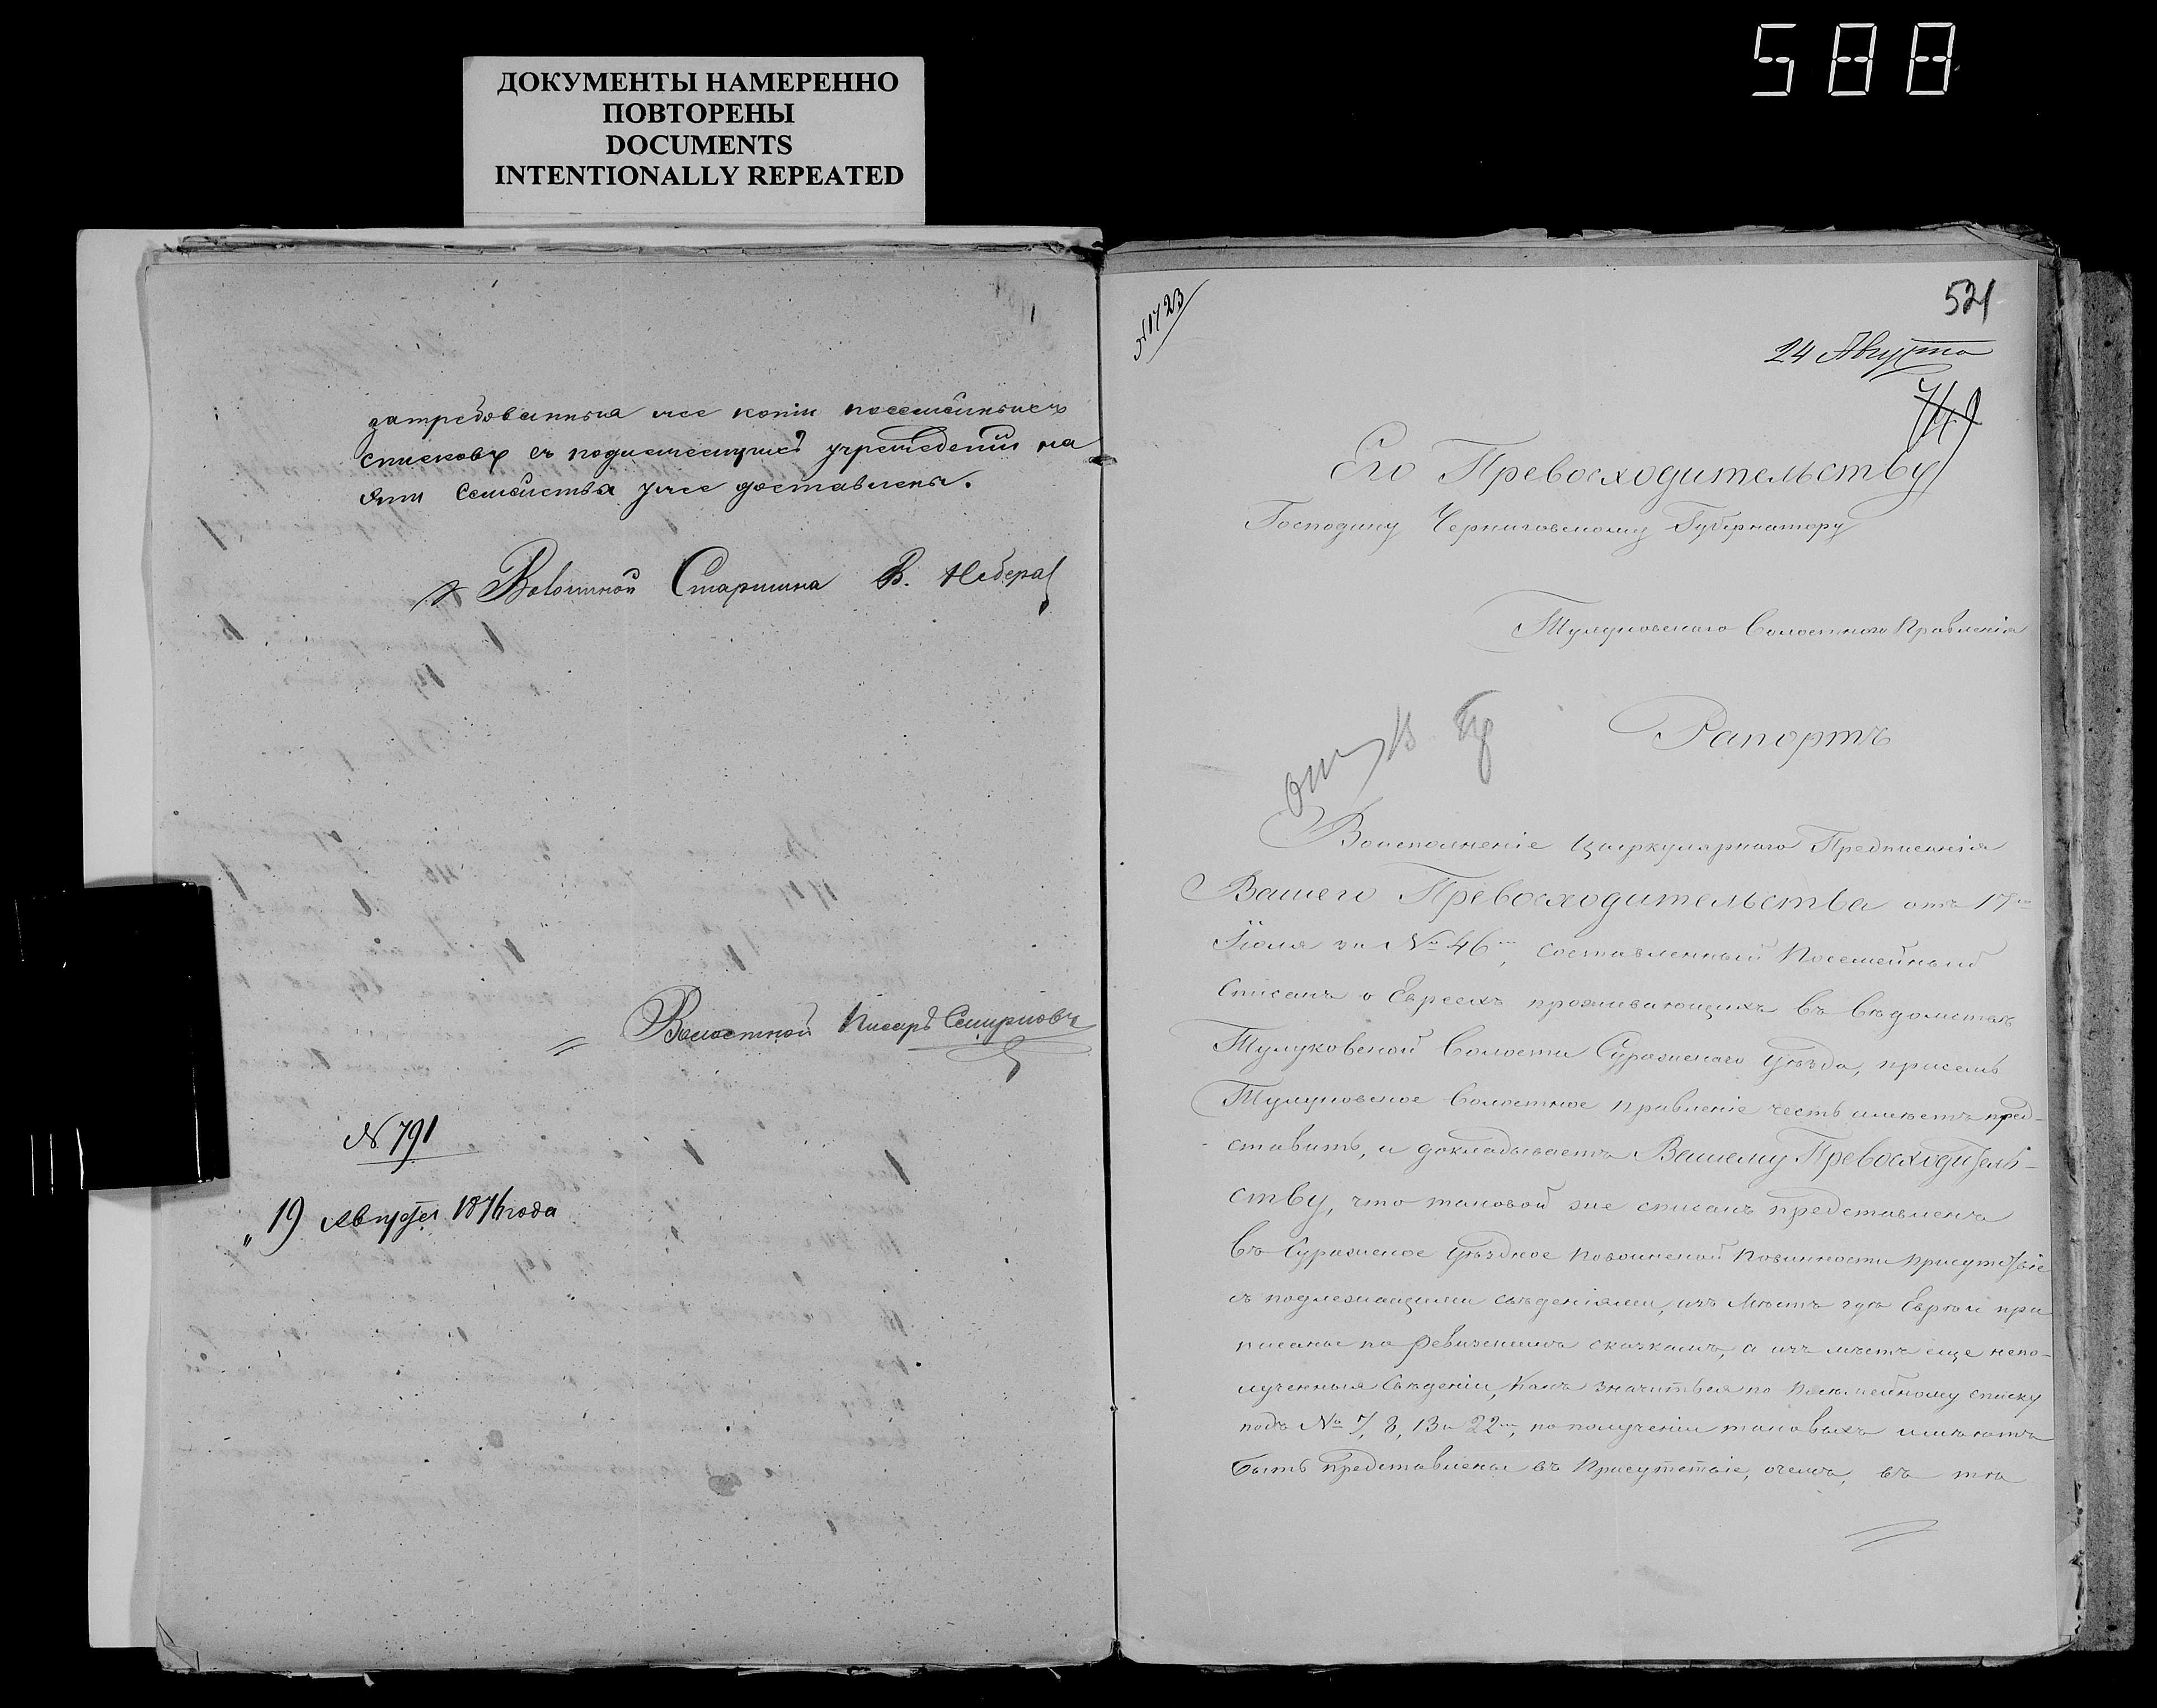 588
ДОКУМЕНТЫ НАМЕРЕННО
ПОВТОРЕНЫ
DOCUMENTS
INTENTIONALLY REPEATED
затребованныя же копіи посемейныхъ
списковъ съ подлежащихъ учрежденій на
эти семейства уже доставлены.
Волостной Старшина В.
Волостной Писарь Смирновъ
№ 791
„19 Августа 1876 года
№ 1723
521
24 Августа
Его Превосходительству
Господину Черниговскому Губернатору
Тулуковскаго Волостного Правленія
Рапортъ
Воисполненіе Циркулярнаго Предписанія
Вашего Превосходительства отъ 17го
Іюля за № 46м, составленный Посемейный
списокъ о Евреяхъ проживающихъ въ вѣдомствѣ
Тулуковской Волости Суражскаго Уѣзда, присемъ
Тулуковское Волостное Правленіе честь имѣетъ пред-
ставить, и докладываетъ Вашему Превосходитель-
ству, что таковой же списокъ представленъ
въ Суражское Уѣздное повоинской повинности Присутствіе
съ подлежащими свѣденіями, изъ Мѣстъ гдѣ Евреи при
писаны по ревизскимъ сказкамъ, а изъ мѣстъ еще непо-
лученныя Свѣденіи, Какъ значиться по Посемейному списку
подъ № 7, 8, 13 и 22м, по полученіи таковыхъ имѣютъ
быть представлены въ Присутствіе, очемъ, въ